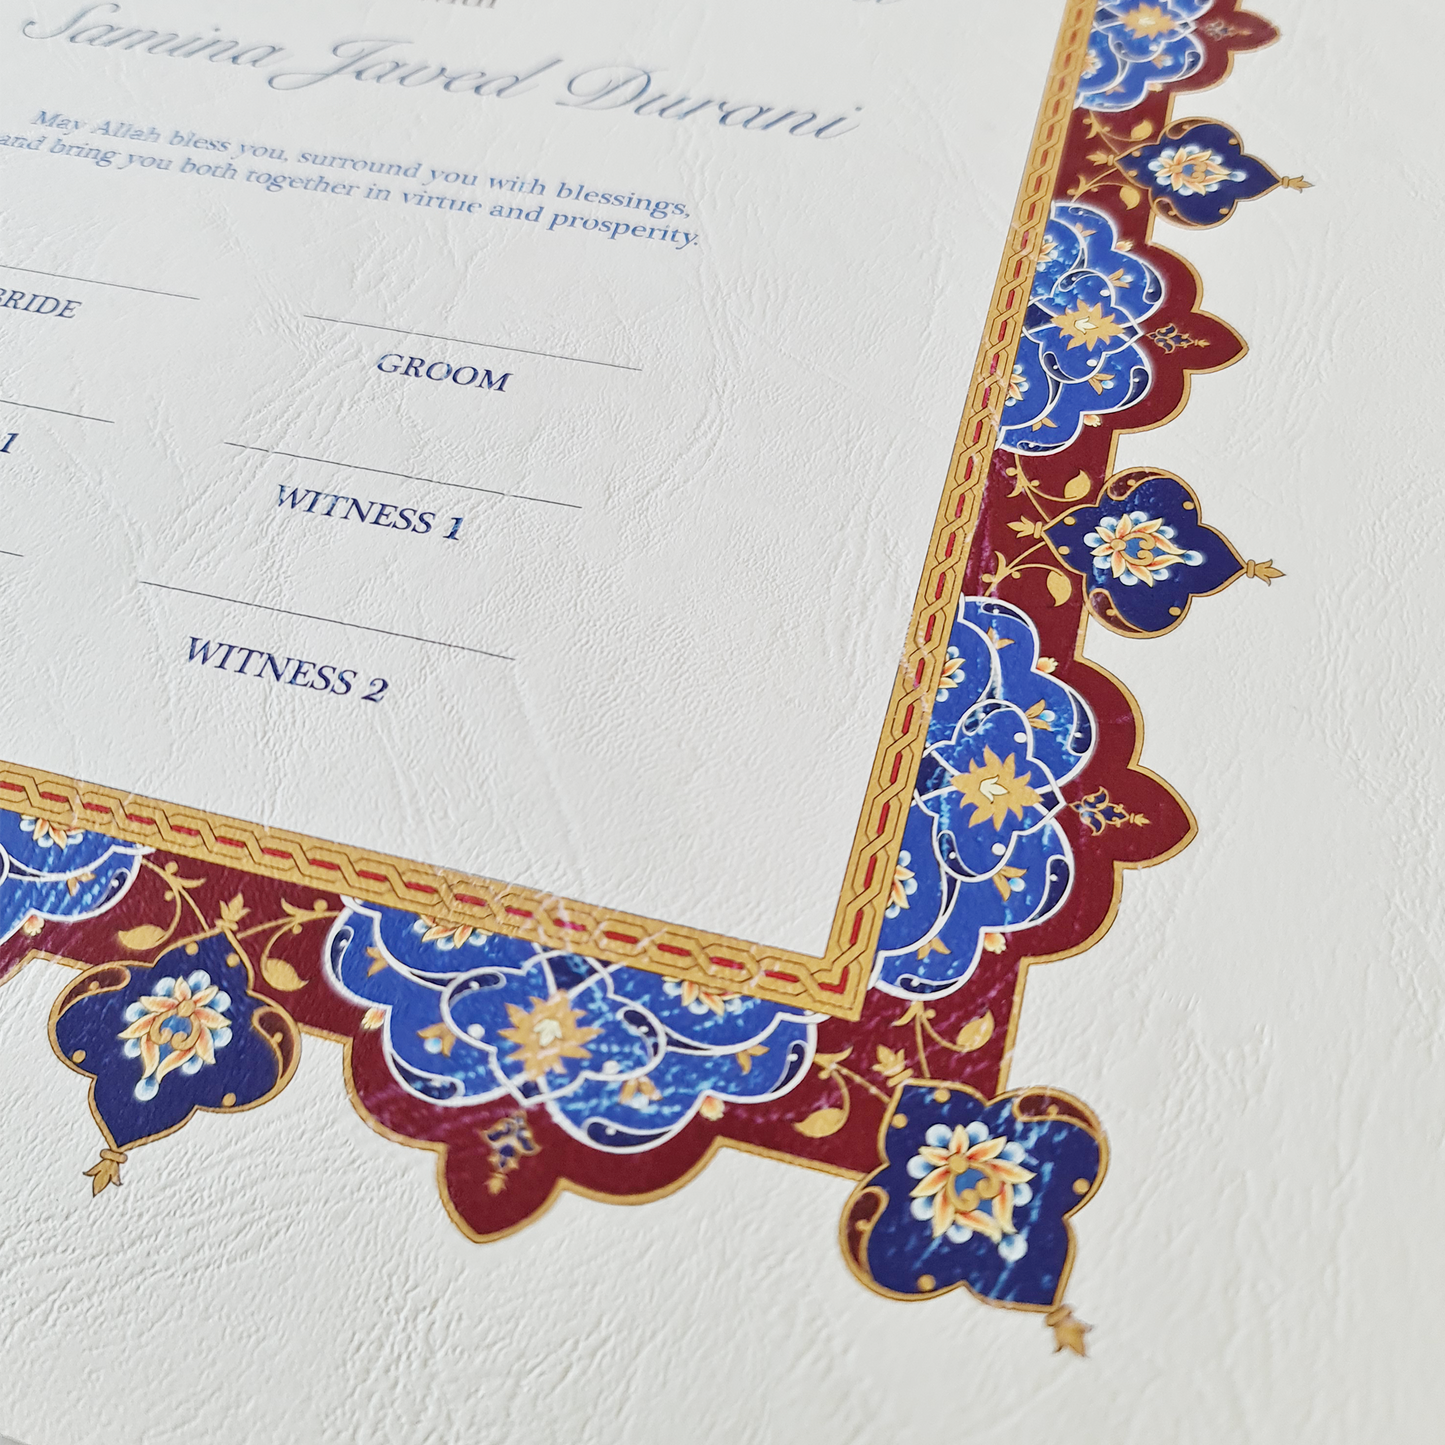 with
Samina Javed Durani
May Allah bless you, surround you with blessings,
and bring you both together in virtue and prosperity.
BRIDE
GROOM
1
WITNESS 1
WITNESS 2